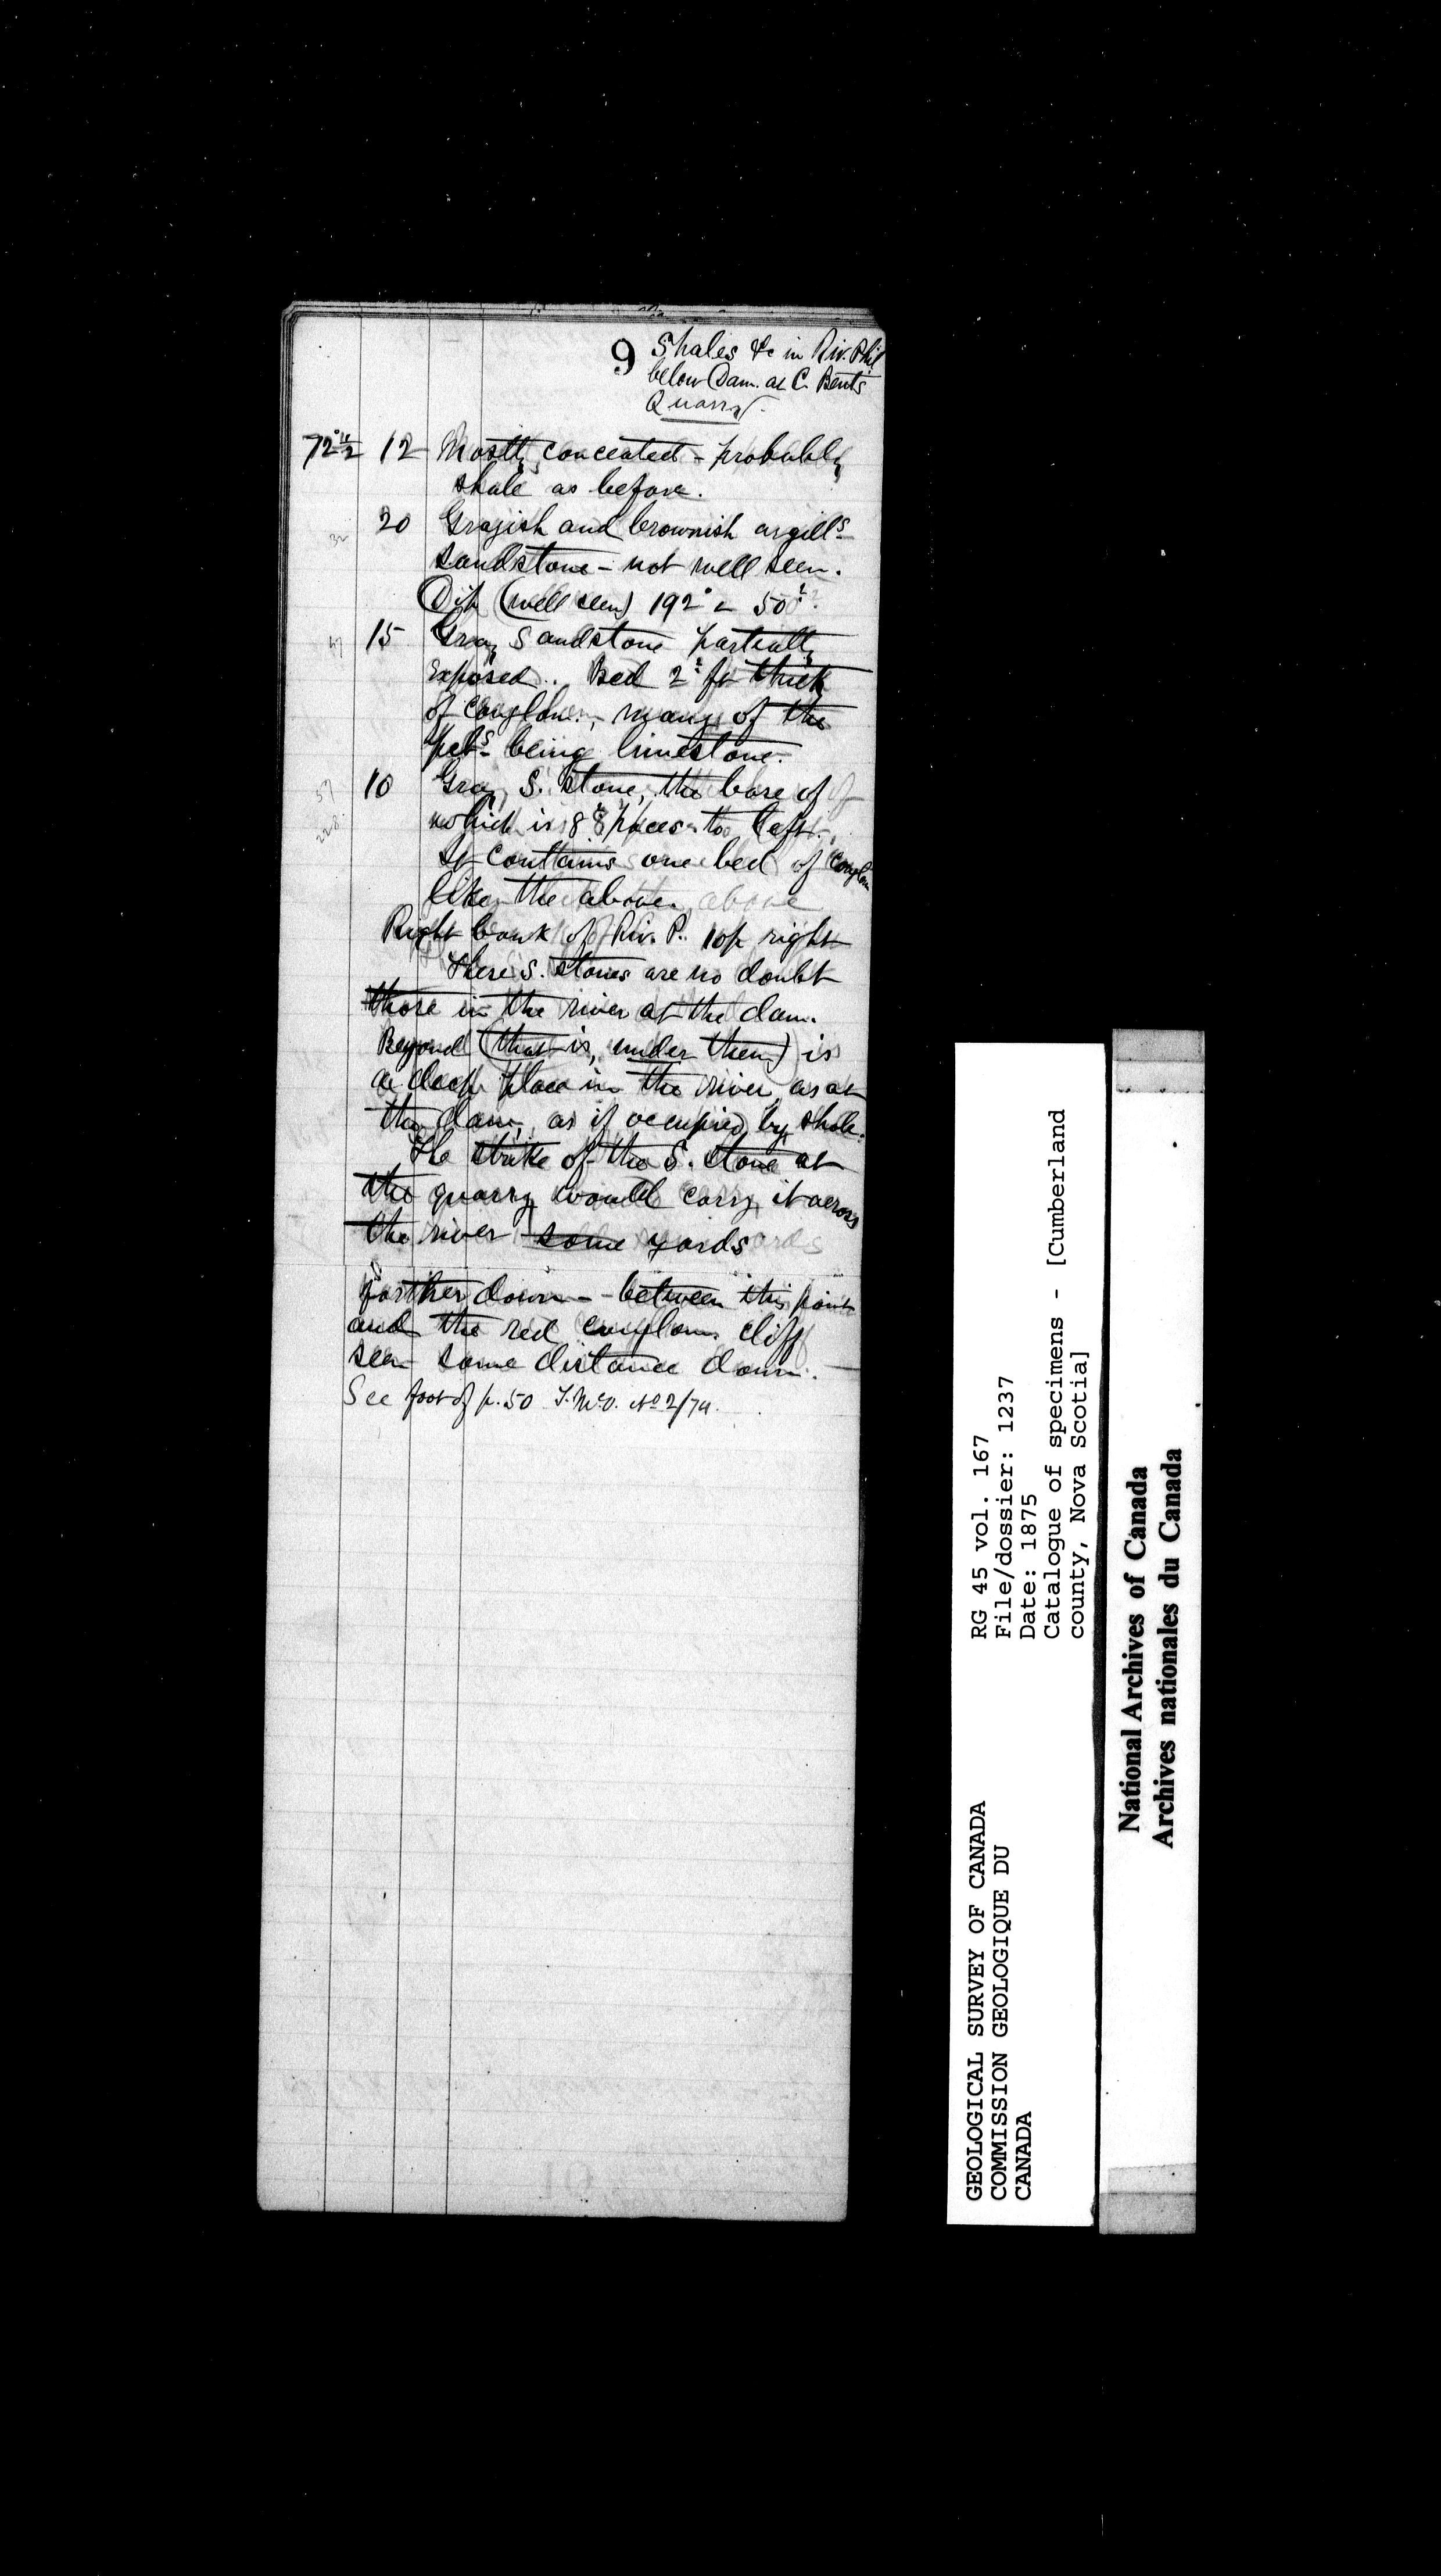 9
Shales &c in Riv. Phil
below Dam. at C. Bent's
Quarry.
12 Mostly concealed - probably
shale as before.
20 Grayish and brownish argill.s
32
sandstone - not well seen.
Dip (well seen) 192° ∠ 50°
15 Gray Sandstone partially
47
exposed. Bed 2 ft thick
of conglom., many of the
peb.s being limestone.
10 Gray S. stone, the base of
57
which is 8 paces to left.
228
It contains one bed of conglom
like the above.
Right bank of Riv. P. top right
These S. stones are no doubt
those in the river at the dam.
Beyond (that is, under them) is
a deep place in the river, as at
the dam, as if occupied by shale.
The strike of the S. stone at
the quarry would carry it across
the river some yards
farther down - between this point
and the red conglom. cliff
seen some distance down.
See foot of p. 50 No 2/74.
RG 45 vol. 167
File/dossier: 1237
Date: 1875
Catalogue of specimens - [Cumberland
county, Nova Scotia]
GEOLOGICAL SURVEY OF CANADA
COMMISSION GEOLOGIQUE DU
CANADA
National Archives of Canada
Archives nationales du Canada